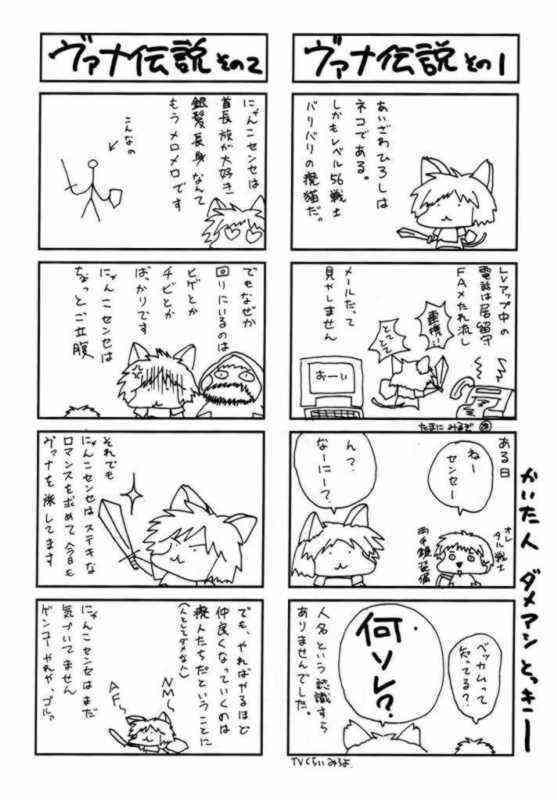 ヴァナ伝説 その1
あいざわひろしは
ネコである。
しかもレベル56戦士
バリバリの廃猫だ。
Lvアップ中の
電話は居留守
FAXたれ流し
メールだって
見やしません
重携い
とてとて
とてとて
おーい
たまにみるぞ
ある日
ねー
センセー
ん?
なーにー?
オレ
タル戦士
両手鎌装備
ベッカムって
知ってる?
何ソレ?
人名という認識すら
ありませんでした。
TVくらいみろよ
ヴァナ伝説 その2
にゃんこセンセは
首長族が大好き
銀髪長身なんて
もうメロメロです
こんなの
でもなぜか
回りにいるのは
ヒゲとか
チビとか
ばっかりです
にゃんこセンセは
ちょっとご立腹
それでも
にゃんこセンセはステキな
ロマンスを求めて今日も
ヴァナを旅してます
でも、やればやるほど
仲良くなっていくのは
廃人たちだということに
(人としてダメな人)
にゃんこセンセはまだ
気づいてません
ゲンコーやれや、ゴルァ
NM〜
AF〜
かいた人 ダメアシとっきー